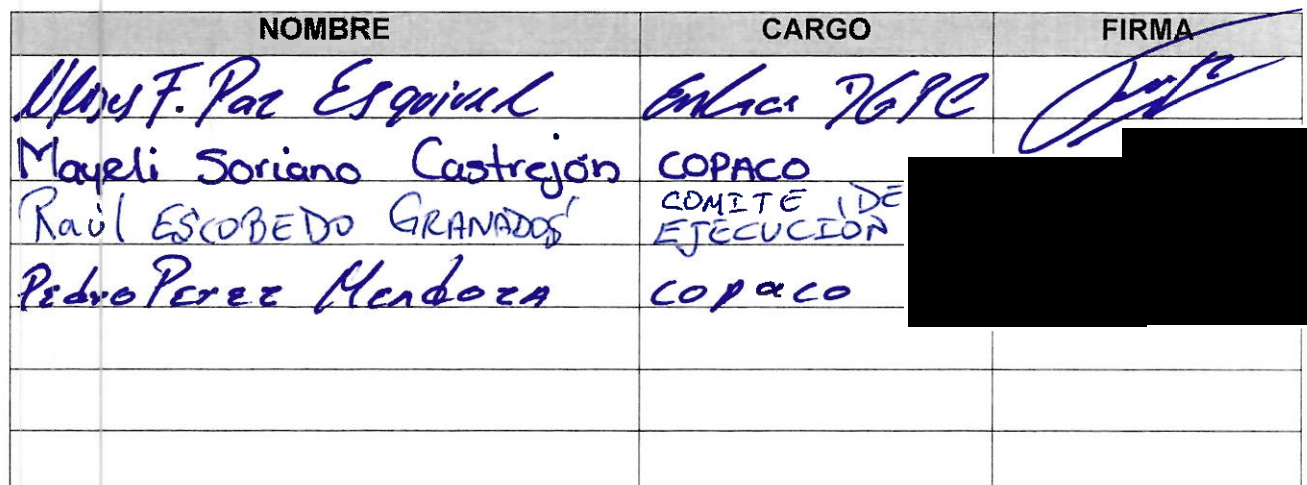 NOMBRE CARGO FIRMA
Ulises F. Paz Esquivel Enlace DGPC
Mayeli Soriano Castrejón COPACO
Raúl ESCOBEDO GRANADOS COMITE DE
EJECUCIÓN
Pedro Perez Mendoza copaco